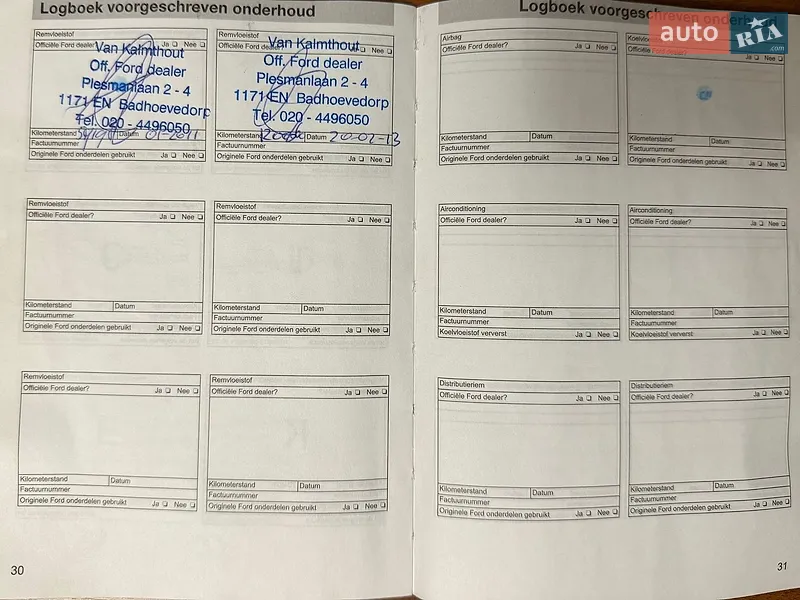 Logboek voorgeschreven onderhoud
Remvloeistof
Officiële Ford dealer? Ja Nee
Van Kalmthout
Off. Ford dealer
Plesmanlaan 2 - 4
1171 EN Badhoevedorp
Tel. 020 - 4496050
Kilometerstand Datum 01-2011
Factuurnummer
Originele Ford onderdelen gebruikt Ja Nee
Remvloeistof
Officiële Ford dealer? Ja Nee
Van Kalmthout
Off. Ford dealer
Plesmanlaan 2 - 4
1171 EN Badhoevedorp
Tel. 020 - 4496050
Kilometerstand Datum 20-02-13
Factuurnummer
Originele Ford onderdelen gebruikt Ja Nee
Remvloeistof
Officiële Ford dealer? Ja Nee
Kilometerstand Datum
Factuurnummer
Originele Ford onderdelen gebruikt Ja Nee
Remvloeistof
Officiële Ford dealer? Ja Nee
Kilometerstand Datum
Factuurnummer
Originele Ford onderdelen gebruikt Ja Nee
Remvloeistof
Officiële Ford dealer? Ja Nee
Kilometerstand Datum
Factuurnummer
Originele Ford onderdelen gebruikt Ja Nee
Remvloeistof
Officiële Ford dealer? Ja Nee
Kilometerstand Datum
Factuurnummer
Originele Ford onderdelen gebruikt Ja Nee
30
Logboek voorgeschreven onderhoud
auto RIA .com
Airbag
Officiële Ford dealer? Ja Nee
Kilometerstand Datum
Factuurnummer
Originele Ford onderdelen gebruikt Ja Nee
Officiële Ford dealer? Ja Nee
Kilometerstand Datum
Factuurnummer
Originele Ford onderdelen gebruikt Ja Nee
Airconditioning
Officiële Ford dealer? Ja Nee
Kilometerstand Datum
Factuurnummer
Koelvloeistof ververst Ja Nee
Airconditioning
Officiële Ford dealer? Ja Nee
Kilometerstand Datum
Factuurnummer
Koelvloeistof ververst Ja Nee
Distributieriem
Officiële Ford dealer? Ja Nee
Kilometerstand Datum
Factuurnummer
Originele Ford onderdelen gebruikt Ja Nee
Distributieriem
Officiële Ford dealer? Ja Nee
Kilometerstand Datum
Factuurnummer
Originele Ford onderdelen gebruikt Ja Nee
31